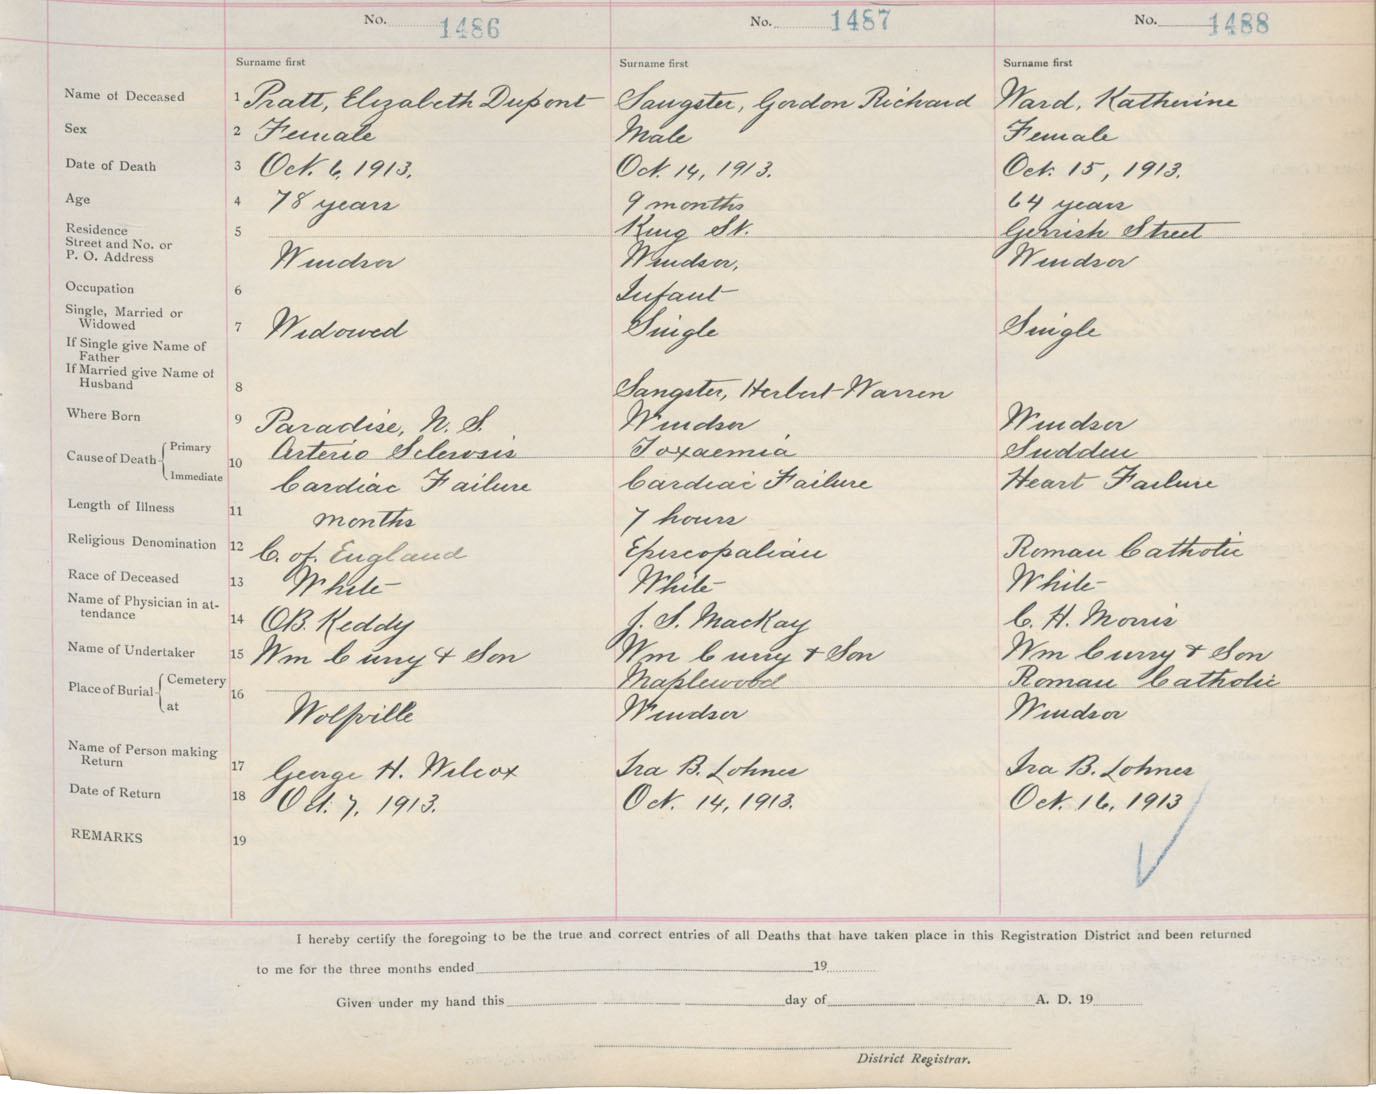 No. 1486 No. 1487 No. 1488
Surname first Surname first Surname first
Name of Deceased 1 Pratt, Elizabeth Dupont Sangster, Gordon Richard Ward, Katherine
Sex 2 Female Male Female
Date of Death 3 Oct. 6, 1913. Oct. 14, 1913. Oct. 15, 1913.
Age 4 78 years 9 months 64 years
Residence 5 King St. Gerrish Street
Street and No. or
P. O. Address Windsor Windsor, Windsor
Occupation 6 Infant
Single, Married or
Widowed 7 Widowed Single Single
If Single give Name of
Father
If Married give Name of
Husband 8 Sangster, Herbert Warren
Where Born 9 Paradise, N. S. Windsor Windsor
Cause of Death Primary 10 Arterio Sclerosis Toxaemia Sudden
Immediate Cardiac Failure Cardiac Failure Heart Failure
Length of Illness 11 months 7 hours
Religious Denomination 12 C. of England Episcopalian Roman Catholic
Race of Deceased 13 White White White
Name of Physician in at-
tendance 14 OB. Keddy J. S. MacKay C. H. Morris
Name of Undertaker 15 Wm Curry & Son Wm Curry & Son Wm Curry & Son
Place of Burial Cemetery 16 Maplewood Roman Catholic
at Wolfville Windsor Windsor
Name of Person making
Return 17 George H. Wilcox Ira B. Lohnes Ira B. Lohnes
Date of Return 18 Oct. 7, 1913. Oct. 14, 1913. Oct. 16, 1913
REMARKS 19
I hereby certify the foregoing to be the true and correct entries of all Deaths that have taken place in this Registration District and been returned
to me for the three months ended 19
Given under my hand this day of A. D. 19
District Registrar.